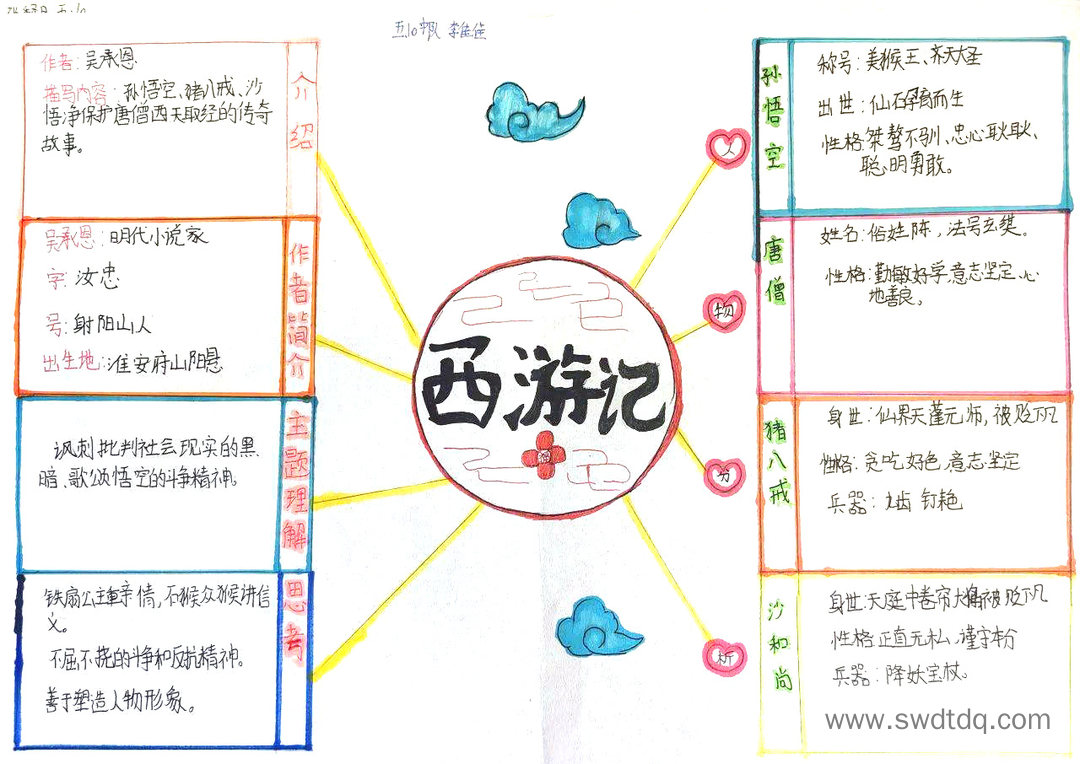 五10中队
介绍
作者:吴承恩
描写内容:孙悟空、猪八戒、沙
悟净保护唐僧西天取经的传奇
故事。
作者简介
吴承恩:明代小说家
字:汝忠
号:射阳山人
出生地:淮安府山阳
主题理解
讽刺批判社会现实的黑
暗、歌颂悟空的斗争精神。
思考
铁扇公主重亲情,石猴众猴讲信
义。
不屈不挠的斗争和反抗精神。
善于塑造人物形象。
西游记
人
物
分
析
孙悟空
称号:美猴王、齐天大圣
出世:仙石孕育而生
性格:桀骜不驯、忠心耿耿、
聪明勇敢。
唐僧
姓名:俗姓陈,法号玄奘。
性格:勤敏好学,意志坚定、心
地善良。
猪八戒
身世:仙界天蓬元帅,被贬下凡
性格:贪吃、好色,意志坚定
兵器:
沙和尚
身世:天庭中卷帘大将被贬下凡
性格:正直无私、谨守本分
兵器:降妖宝杖。
www.swdtdq.com